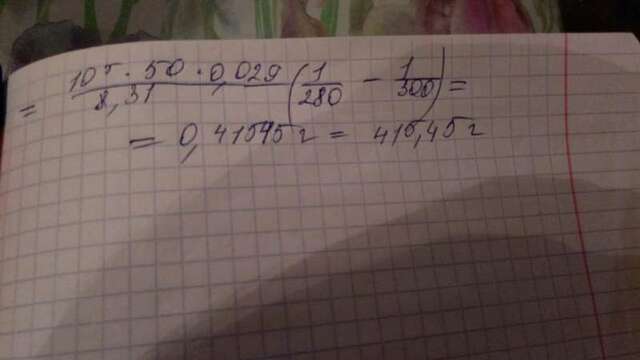 = 10⁵ · 50 · 0,029 / 8,31 (1/280 − 1/300) =
= 0,41545 г = 415,45 г